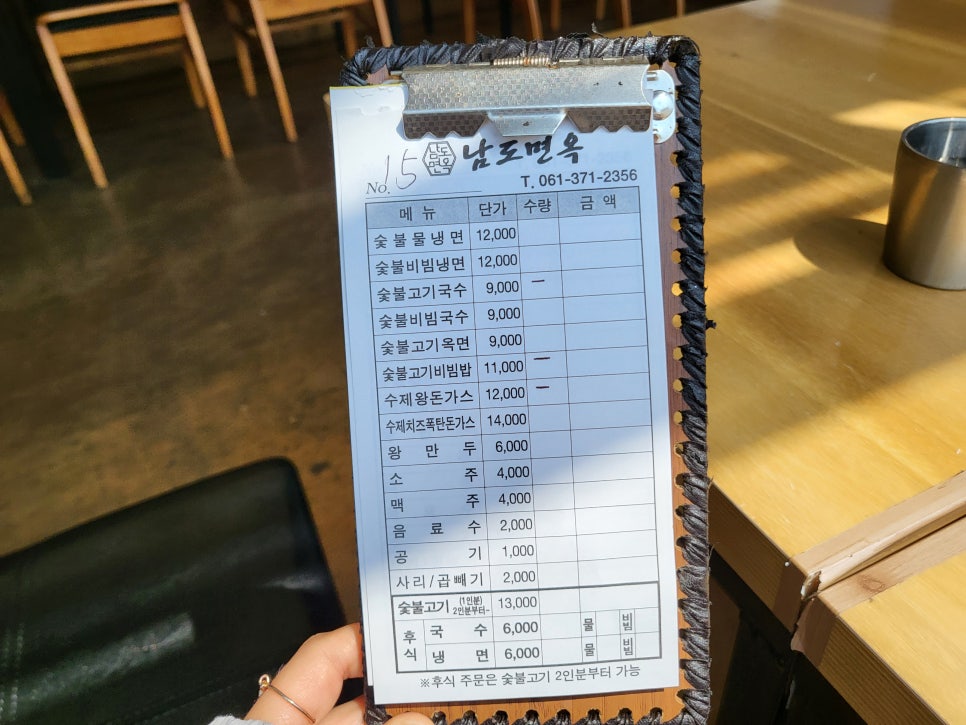 No. 15 남도면옥 남도면옥
T. 061-371-2356
메 뉴 단가 수량 금 액
숯불물냉면 12,000
숯불비빔냉면 12,000
숯불고기국수 9,000 一
숯불비빔국수 9,000
숯불고기옥면 9,000
숯불고기비빔밥 11,000 一
수제왕돈가스 12,000 一
수제치즈폭탄돈가스 14,000
왕 만 두 6,000
소 주 4,000
맥 주 4,000
음 료 수 2,000
공 기 1,000
사리/곱빼기 2,000
숯불고기 (1인분) 2인분부터~ 13,000
후식 국 수 6,000 물 비빔
냉 면 6,000 물 비빔
※후식 주문은 숯불고기 2인분부터 가능